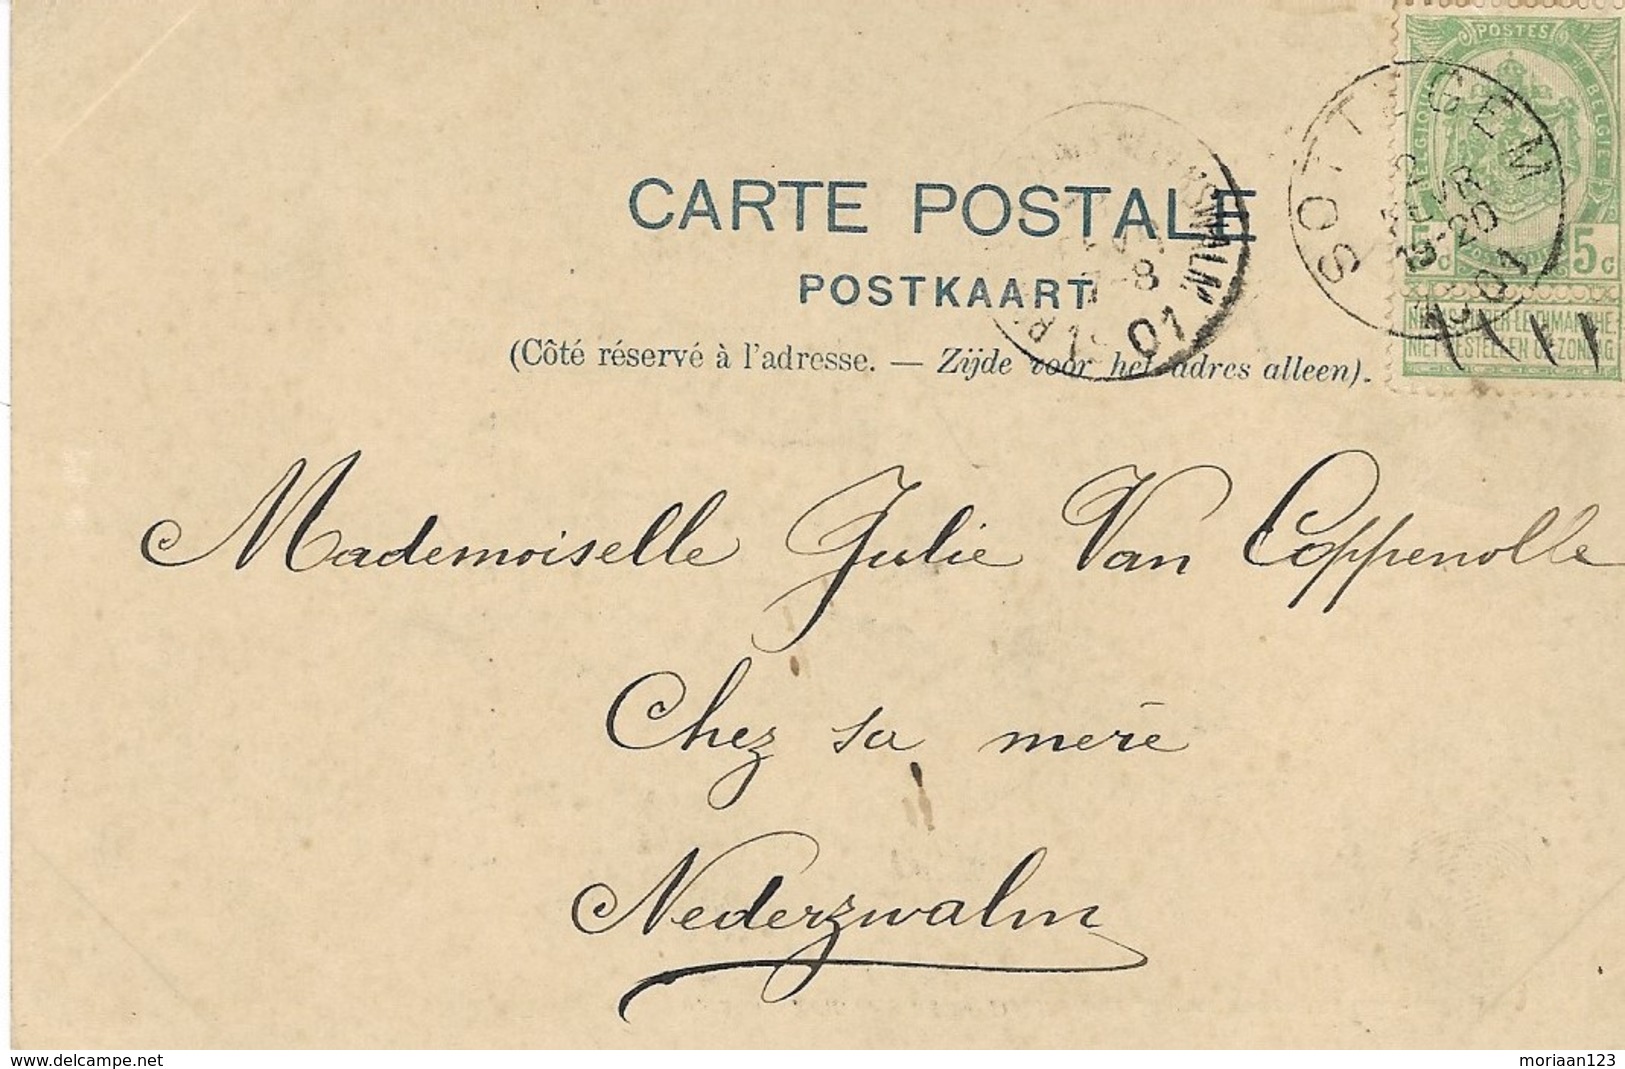 CARTE POSTALE
POSTKAART
(Côté réservé à l'adresse. — Zijde voor het adres alleen).
POSTES
BELGIQUE BELGIE
5c
NE PAS LIVRER LE DIMANCHE.
NIET BESTELLEN OP ZONDAG.
SOTTEGEM
FEVR
19-20
1901
7-8
01
Mademoiselle Julie Van Coppenolle
Chez sa mère
Nederzwalm
www.delcampe.net
moriaan123